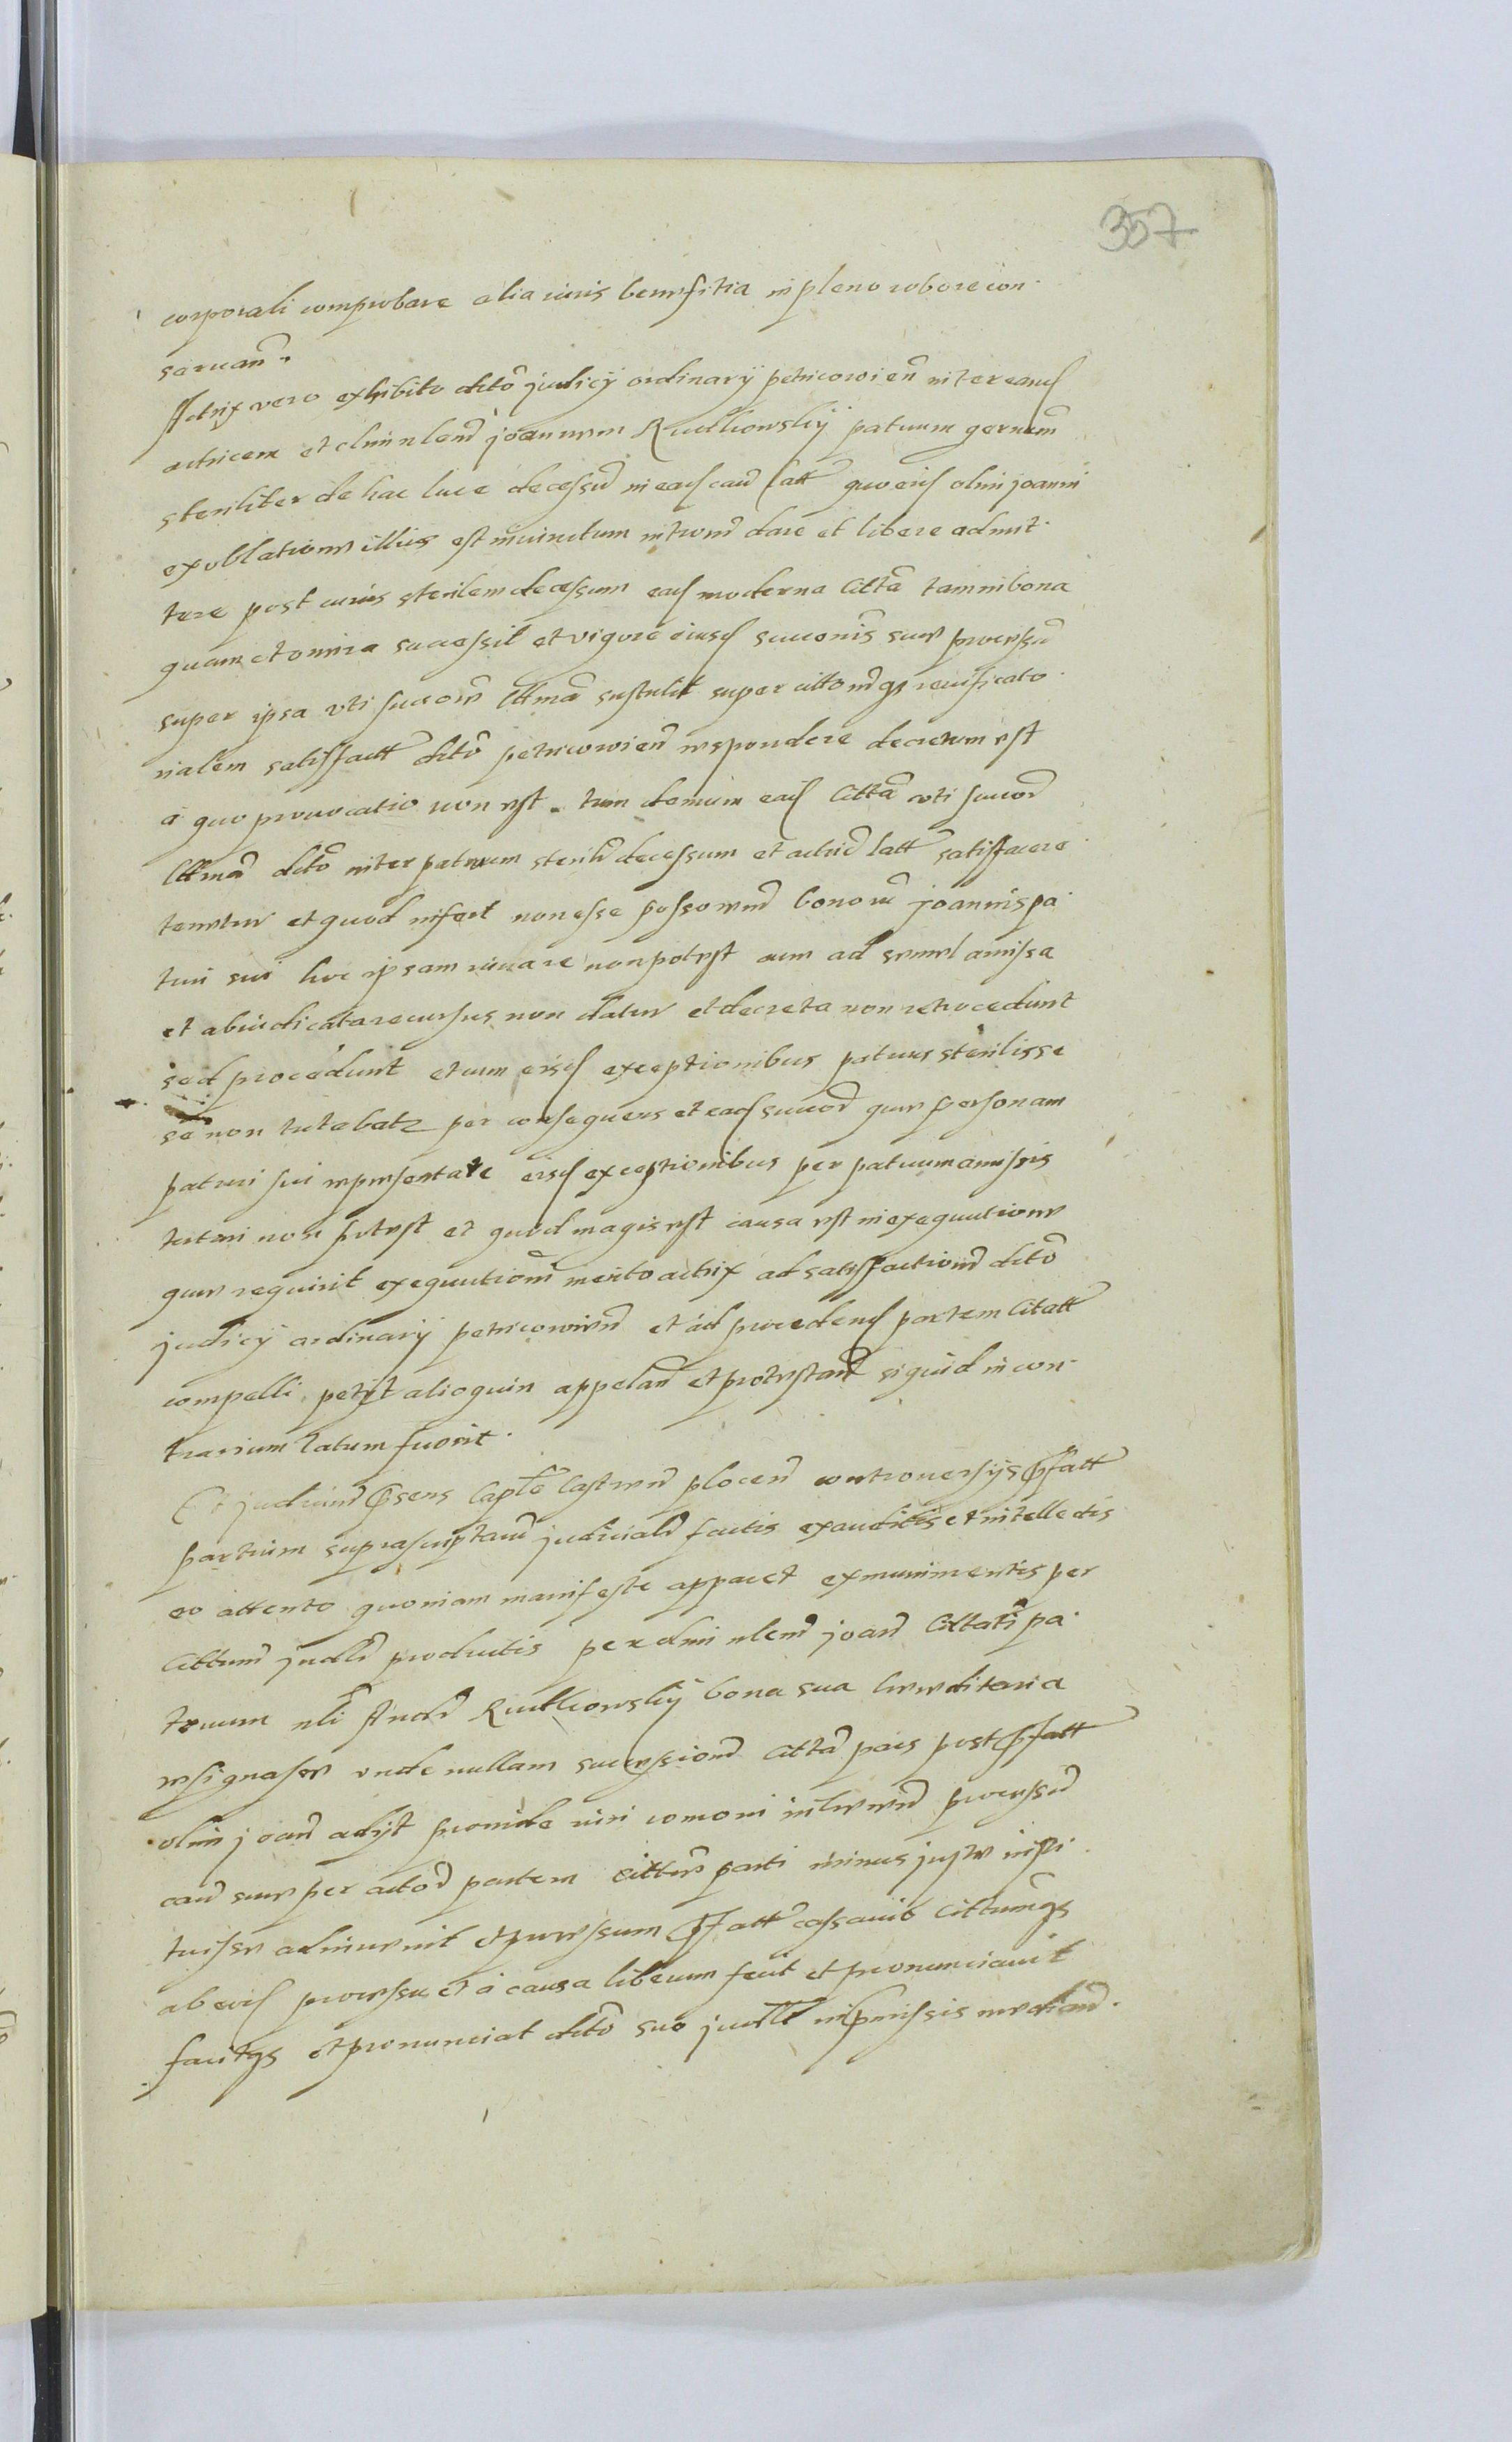 357
corporali comprobare alia iuris beneficia in pleno robore con-
seruan̄.
Actrix vero exhibito dcto judicij ordinarij petricowien̄ inter eand
actricem et olim nlem̄ joannem Rudkowskij patruum germ̄
steriliter de hac luce decessū in ead cau latt quo eid olim joanni
ex oblatione illius est iniunctum introm̄ dare et libere admit-
tere post cuius sterilem decessum ead moderna Citta tam in bona
quam et omnia successit et vigore eiusd succonis sue processū
super ipsa vti succore lttma sustulit super citto nqs reuisicato
nalem satisfactt dcto petricowien̄ respondere decretum est
a quo prouocatio non est. tum demum ead Citta vti succor
lttma dcto inter patruum sterili decessum et actric latt satisfacere
tenetur et quod infert non esse possorem bonorū joannis pa-
trui sui hoc ipsam iuuare non potest cum ad semel amissa
et abiudicata recursus non datur et decreta non retrocedunt
sed procedunt et cum eisd exceptionibus patruus sterilis se
se non tutabatz per consequens et ead succor que personam
patrui sui representare eisd exceptionibus per patruum amissis
tutari nose potest et quod magis est causa est in exequutione
que requirit exequutionē merito actrix ad satisfactionē dcto
judicij ordinarij petricowien̄ et ad procedend partem Citatt
compelli petijt alioquin appelan̄ et protestan̄ siquid in con-
trarium latum fuerit.
Et judicium psens Caple Castren̄ plocen̄ controuersijs pfatt
partium suprascriptaru judicialr factis exauditis et intellectis
eo attento quoniam manifeste apparet ex munimentis per
Cittum judlr productis per olim nlem̄ joan̄ Cittati pa-
truum nli Andr Rudkowskij bona sua hereditaria
resignasse vnde nullam successionē Citta pars post pfatt
olim joan̄ adijt proinde iuri comoni inheren̄ processū
cau sue per actor partem Citte parti minus juste insti-
tuisse adinuenit et processum pfatt cassauit Cittumqs
ab eod processu et a causa liberum fecit et pronunciauit
facitqs et pronunciat dcto suo judlt in pmissis median̄.